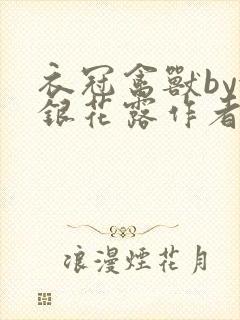 衣冠禽獸by
銀花露作者
浪漫煙花月